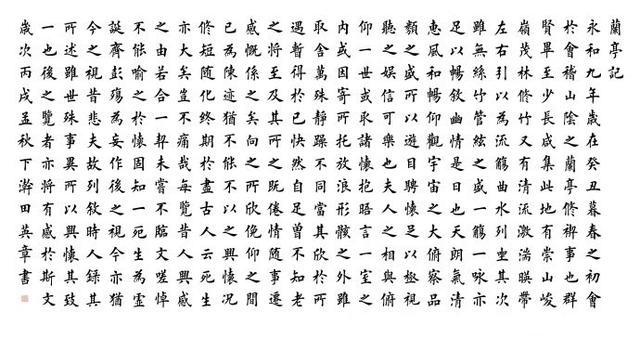 蘭亭記
永和九年歲在癸丑暮春之初會
於會稽山陰之蘭亭修禊事也群
賢畢至少長咸集此地有崇山峻
嶺茂林修竹又有清流激湍映帶
左右引以為流觴曲水列坐其次
雖無絲竹管絃之盛一觴一詠亦
足以暢敘幽情是日也天朗氣清
惠風和暢仰觀宇宙之大俯察品
類之盛所以遊目騁懷足以極視
聽之娛信可樂也夫人之相與俯
仰一世或取諸懷抱晤言一室之
內或因寄所托放浪形骸之外雖
取舍萬殊靜躁不同當其欣於所
遇暫得於己快然自足曾不知老
之將至及其所之既倦情隨事遷
感慨係之矣向之所欣俛仰之間
已為陳迹猶不能不以之興懷況
修短隨化終期於盡古人云死生
亦大矣豈不痛哉每覽昔人興感
之由若合一契未嘗不臨文嗟悼
不能喻之於懷固知一死生為虛
誕齊彭殤為妄作後之視今亦猶
今之視昔悲夫故列敘時人錄其
所述雖世殊事異所以興懷其致
一也後之覽者亦將有感於斯文
歲次丙戌孟秋下澣田英章書